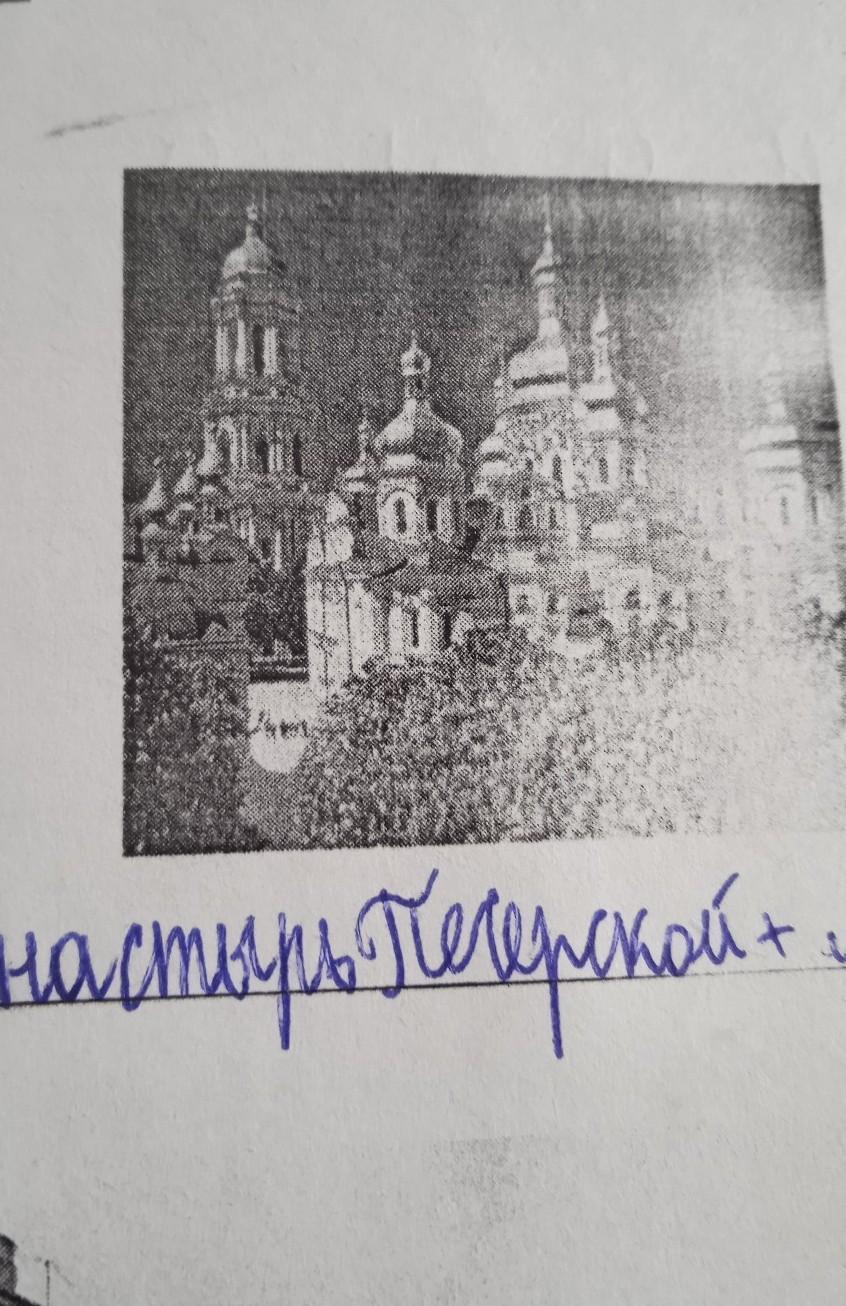 настырь Печерской +